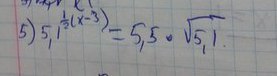 5) 5,1^{\frac{1}{2}(x-3)} = 5,5 \cdot \sqrt{5,1}.